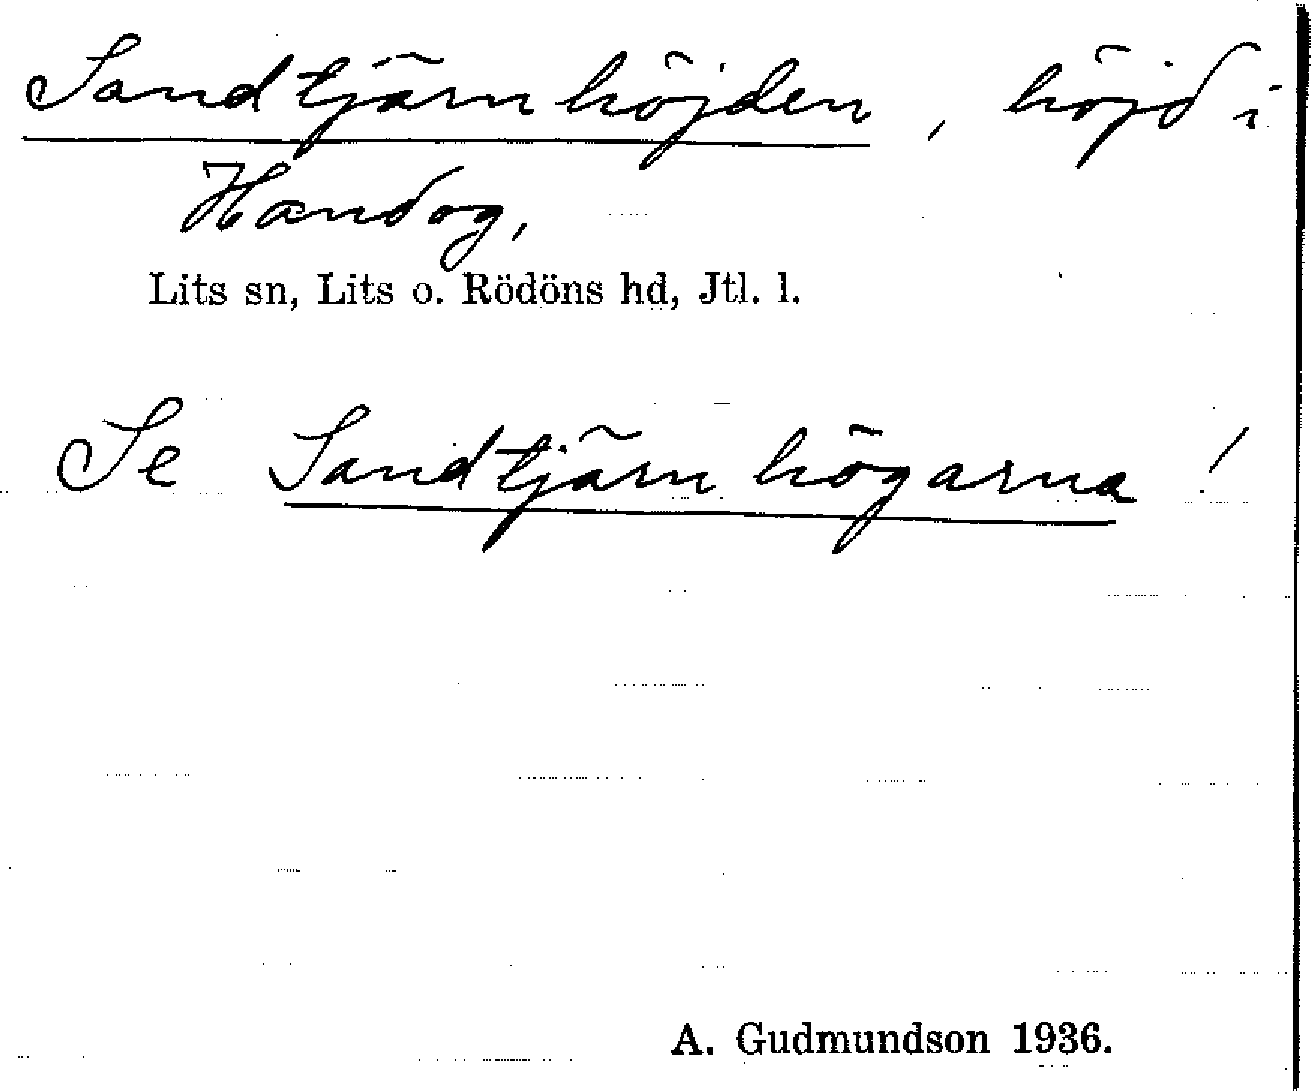 Sandtjärnhöjden, höjd i
Handog,
Lits sn, Lits o. Rödöns hd, Jtl. l.
Se Sandtjärnhögarna!
A. Gudmundson 1936.